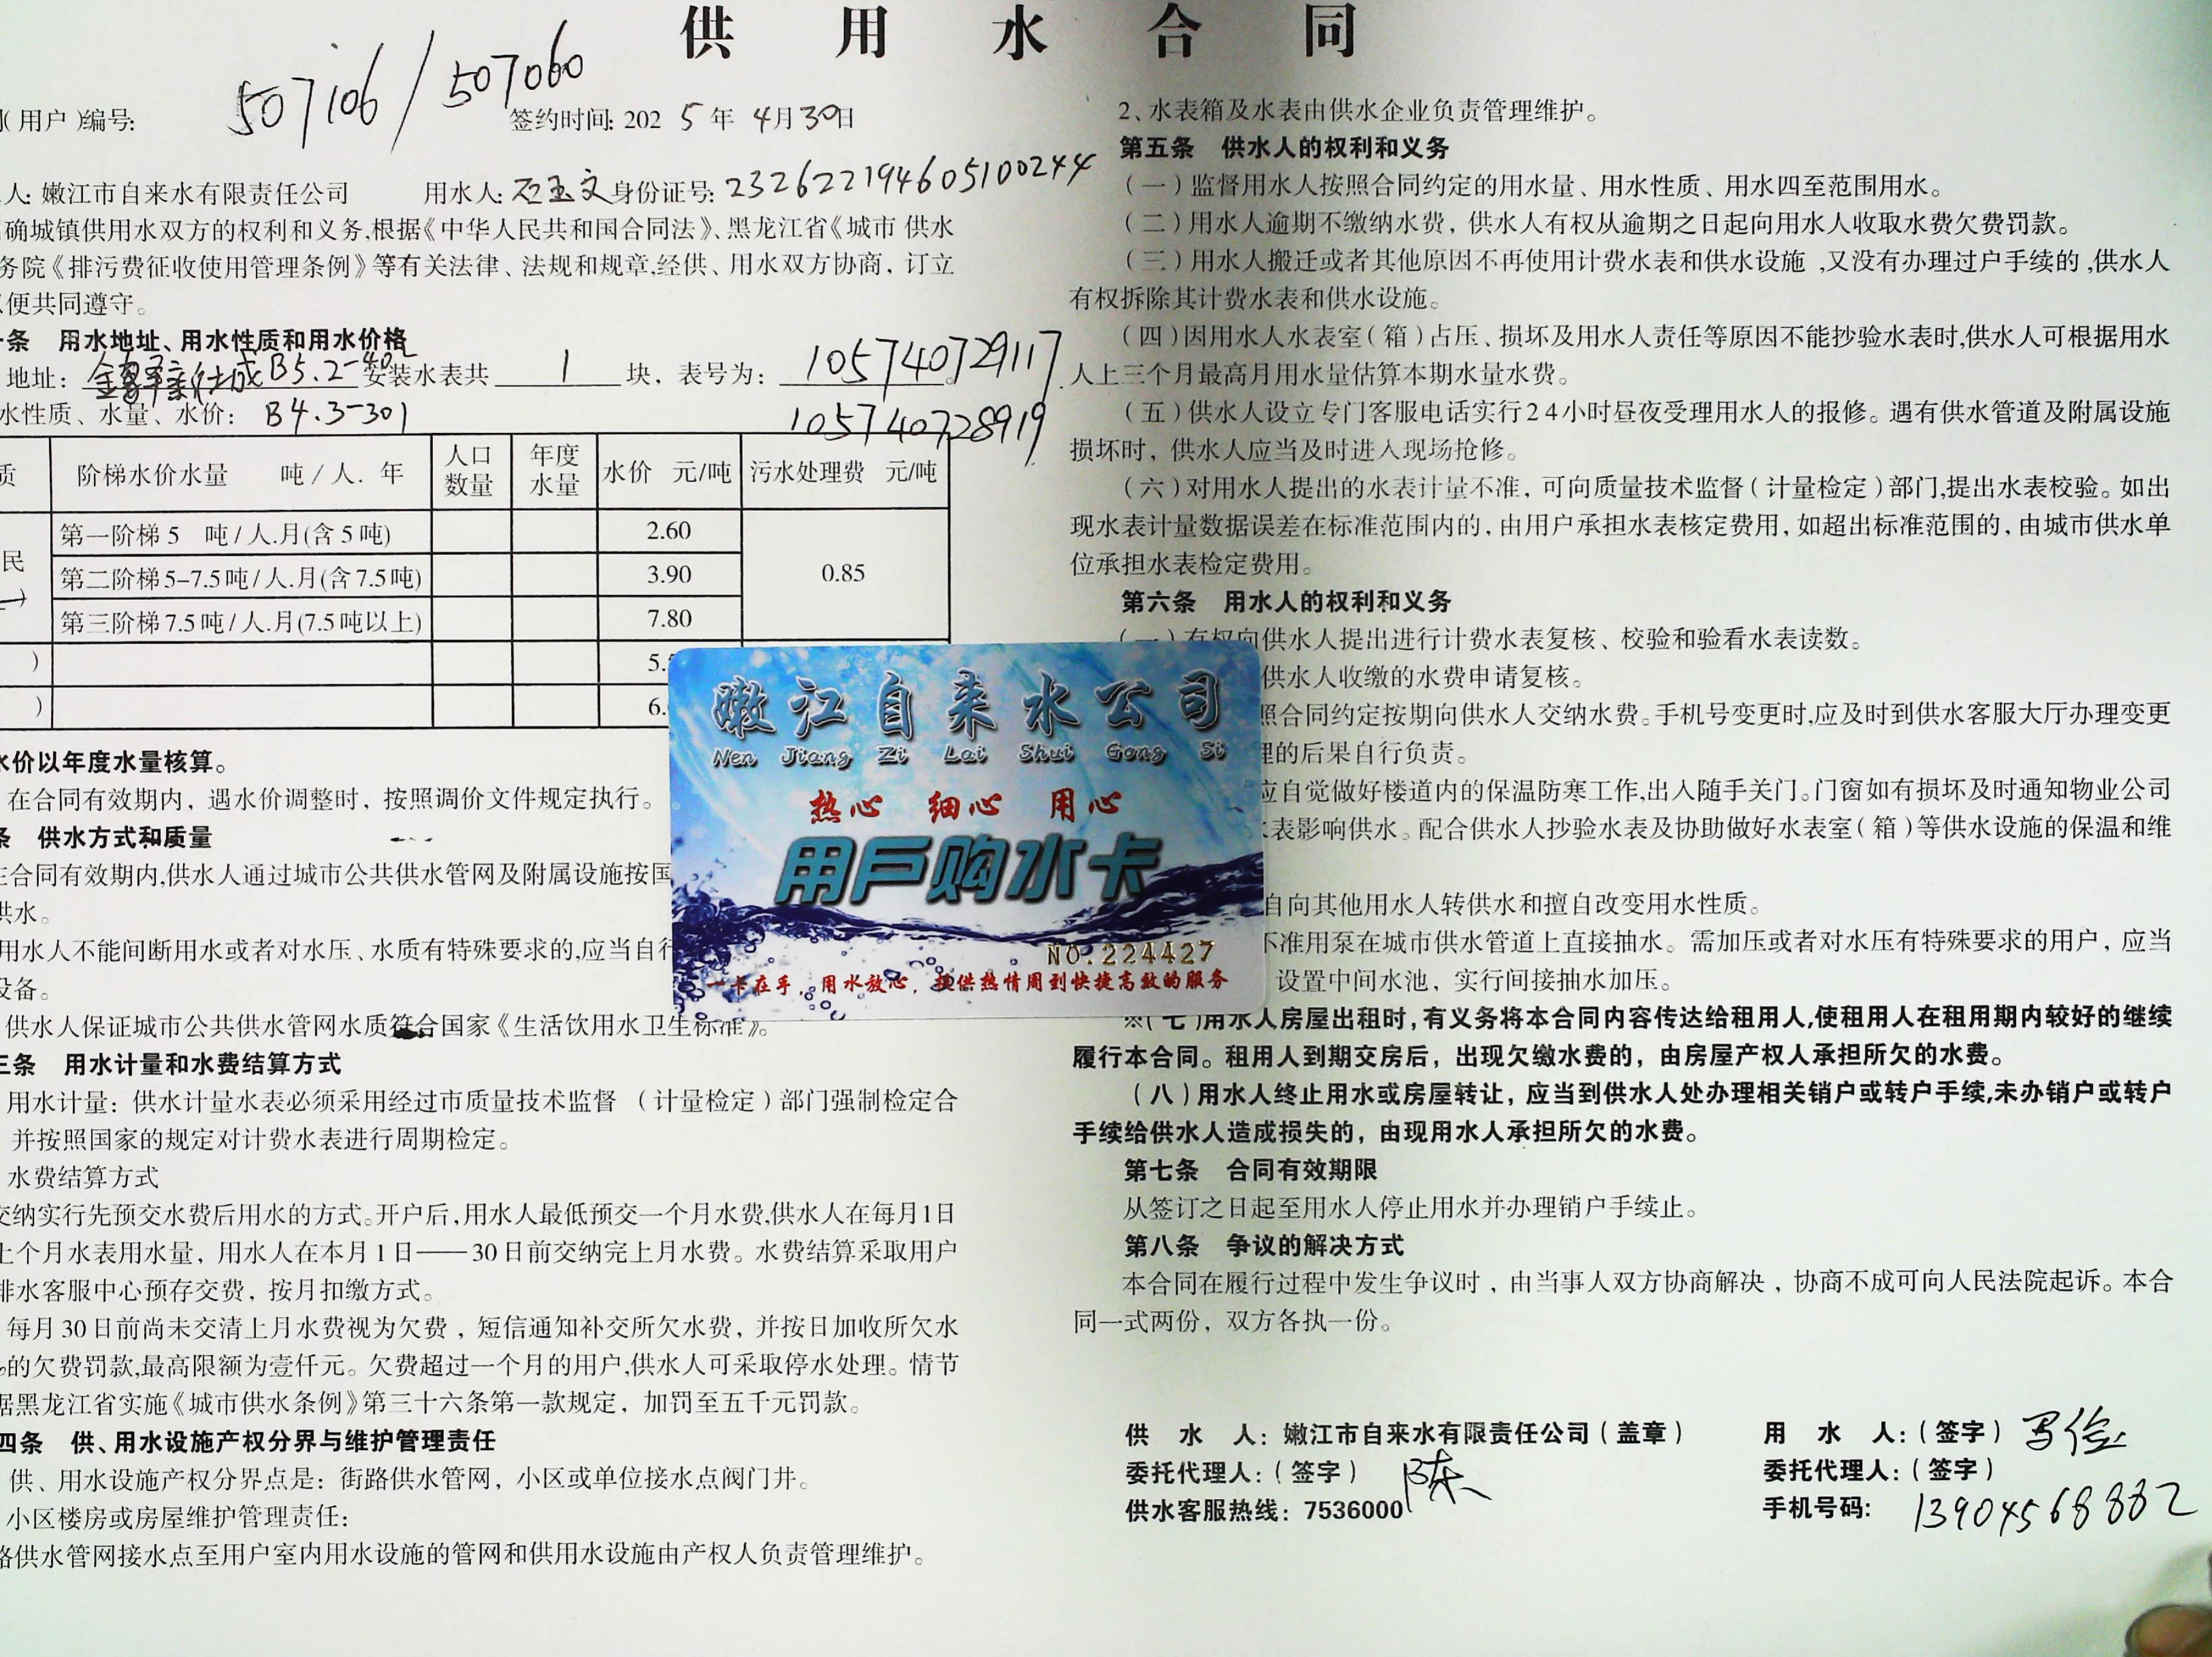 供 用 水 合 同
(用户)编号: 507106/507060
签约时间: 2025年 4月30日
人: 嫩江市自来水有限责任公司 用水人: 石玉文 身份证号: 232622194605100244
确城镇供用水双方的权利和义务,根据《中华人民共和国合同法》、黑龙江省《城市 供水
务院《排污费征收使用管理条例》等有关法律、法规和规章,经供、用水双方协商，订立
便共同遵守。
条 用水地址、用水性质和用水价格
地址: B5.2-402 安装水表共 1 块，表号为: 105740729117
水性质、水量、水价: B4.3-301 105740728919
质 阶梯水价水量 吨/人.年 人口数量 年度水量 水价 元/吨 污水处理费 元/吨
民 第一阶梯 5 吨/人.月(含5吨) 2.60 0.85
第二阶梯5-7.5吨/人.月(含7.5吨) 3.90
第三阶梯7.5吨/人.月(7.5吨以上) 7.80
) 5.
) 6.
水价以年度水量核算。
在合同有效期内，遇水价调整时，按照调价文件规定执行。
条 供水方式和质量
合同有效期内,供水人通过城市公共供水管网及附属设施按国
供水。
用水人不能间断用水或者对水压、水质有特殊要求的,应当自行
设备。
供水人保证城市公共供水管网水质符合国家《生活饮用水卫生标准》。
三条 用水计量和水费结算方式
用水计量：供水计量水表必须采用经过市质量技术监督（计量检定）部门强制检定合
并按照国家的规定对计费水表进行周期检定。
水费结算方式
交纳实行先预交水费后用水的方式。开户后,用水人最低预交一个月水费,供水人在每月1日
上个月水表用水量，用水人在本月1日——30日前交纳完上月水费。水费结算采取用户
排水客服中心预存交费，按月扣缴方式。
每月30日前尚未交清上月水费视为欠费，短信通知补交所欠水费，并按日加收所欠水
的欠费罚款,最高限额为壹仟元。欠费超过一个月的用户,供水人可采取停水处理。情节
据黑龙江省实施《城市供水条例》第三十六条第一款规定，加罚至五千元罚款。
四条 供、用水设施产权分界与维护管理责任
供、用水设施产权分界点是：街路供水管网，小区或单位接水点阀门井。
小区楼房或房屋维护管理责任：
路供水管网接水点至用户室内用水设施的管网和供用水设施由产权人负责管理维护。
2、水表箱及水表由供水企业负责管理维护。
第五条 供水人的权利和义务
（一）监督用水人按照合同约定的用水量、用水性质、用水四至范围用水。
（二）用水人逾期不缴纳水费，供水人有权从逾期之日起向用水人收取水费欠费罚款。
（三）用水人搬迁或者其他原因不再使用计费水表和供水设施,又没有办理过户手续的,供水人
有权拆除其计费水表和供水设施。
（四）因用水人水表室（箱）占压、损坏及用水人责任等原因不能抄验水表时,供水人可根据用水
人上三个月最高月用水量估算本期水量水费。
（五）供水人设立专门客服电话实行24小时昼夜受理用水人的报修。遇有供水管道及附属设施
损坏时，供水人应当及时进入现场抢修。
（六）对用水人提出的水表计量不准，可向质量技术监督（计量检定）部门,提出水表校验。如出
现水表计量数据误差在标准范围内的，由用户承担水表核定费用，如超出标准范围的，由城市供水单
位承担水表检定费用。
第六条 用水人的权利和义务
（一）有权向供水人提出进行计费水表复核、校验和验看水表读数。
供水人收缴的水费申请复核。
照合同约定按期向供水人交纳水费。手机号变更时,应及时到供水客服大厅办理变更
理的后果自行负责。
应自觉做好楼道内的保温防寒工作,出入随手关门。门窗如有损坏及时通知物业公司
表影响供水。配合供水人抄验水表及协助做好水表室（箱）等供水设施的保温和维
自向其他用水人转供水和擅自改变用水性质。
不准用泵在城市供水管道上直接抽水。需加压或者对水压有特殊要求的用户，应当
设置中间水池，实行间接抽水加压。
※（七）用水人房屋出租时，有义务将本合同内容传达给租用人,使租用人在租用期内较好的继续
履行本合同。租用人到期交房后，出现欠缴水费的，由房屋产权人承担所欠的水费。
（八）用水人终止用水或房屋转让，应当到供水人处办理相关销户或转户手续,未办销户或转户
手续给供水人造成损失的，由现用水人承担所欠的水费。
第七条 合同有效期限
从签订之日起至用水人停止用水并办理销户手续止。
第八条 争议的解决方式
本合同在履行过程中发生争议时，由当事人双方协商解决，协商不成可向人民法院起诉。本合
同一式两份，双方各执一份。
供 水 人：嫩江市自来水有限责任公司（盖章）
委托代理人：（签字） 陈
供水客服热线：7536000
用 水 人：（签字）
委托代理人：（签字）
手机号码: 13904568882
嫩江自来水公司
Nen Jiang Zi Lai Shui Gong Si
热心 细心 用心
用户购水卡
NO.224427
一卡在手，用水放心，提供热情周到快捷高效的服务